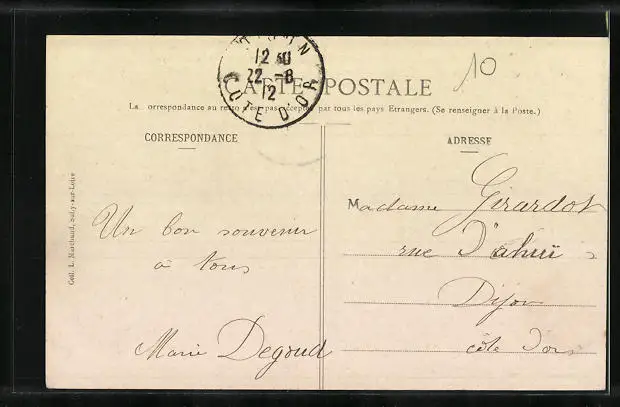 12 30
22 -8
12
COTE D'OR
10
CARTE POSTALE
La correspondance au recto n'est pas acceptée par tous les pays Etrangers. (Se renseigner à la Poste.)
CORRESPONDANCE
Coll. L. Marchand, Sully-sur-Loire
Un bon souvenir
à tous
Marie Degoud
ADRESSE
Madame Girardot
rue
Dijon
côte d'or